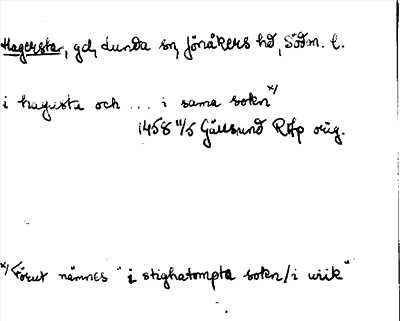 Hagersta, gd, Lunda sn, Jönåkers hd, Södm. l.
i hagersta och ... i sama sokn x/
1458 11/5 Gällsund RAp orig.
x/ Förut nämnes "i stighatompta sokn / i wik"